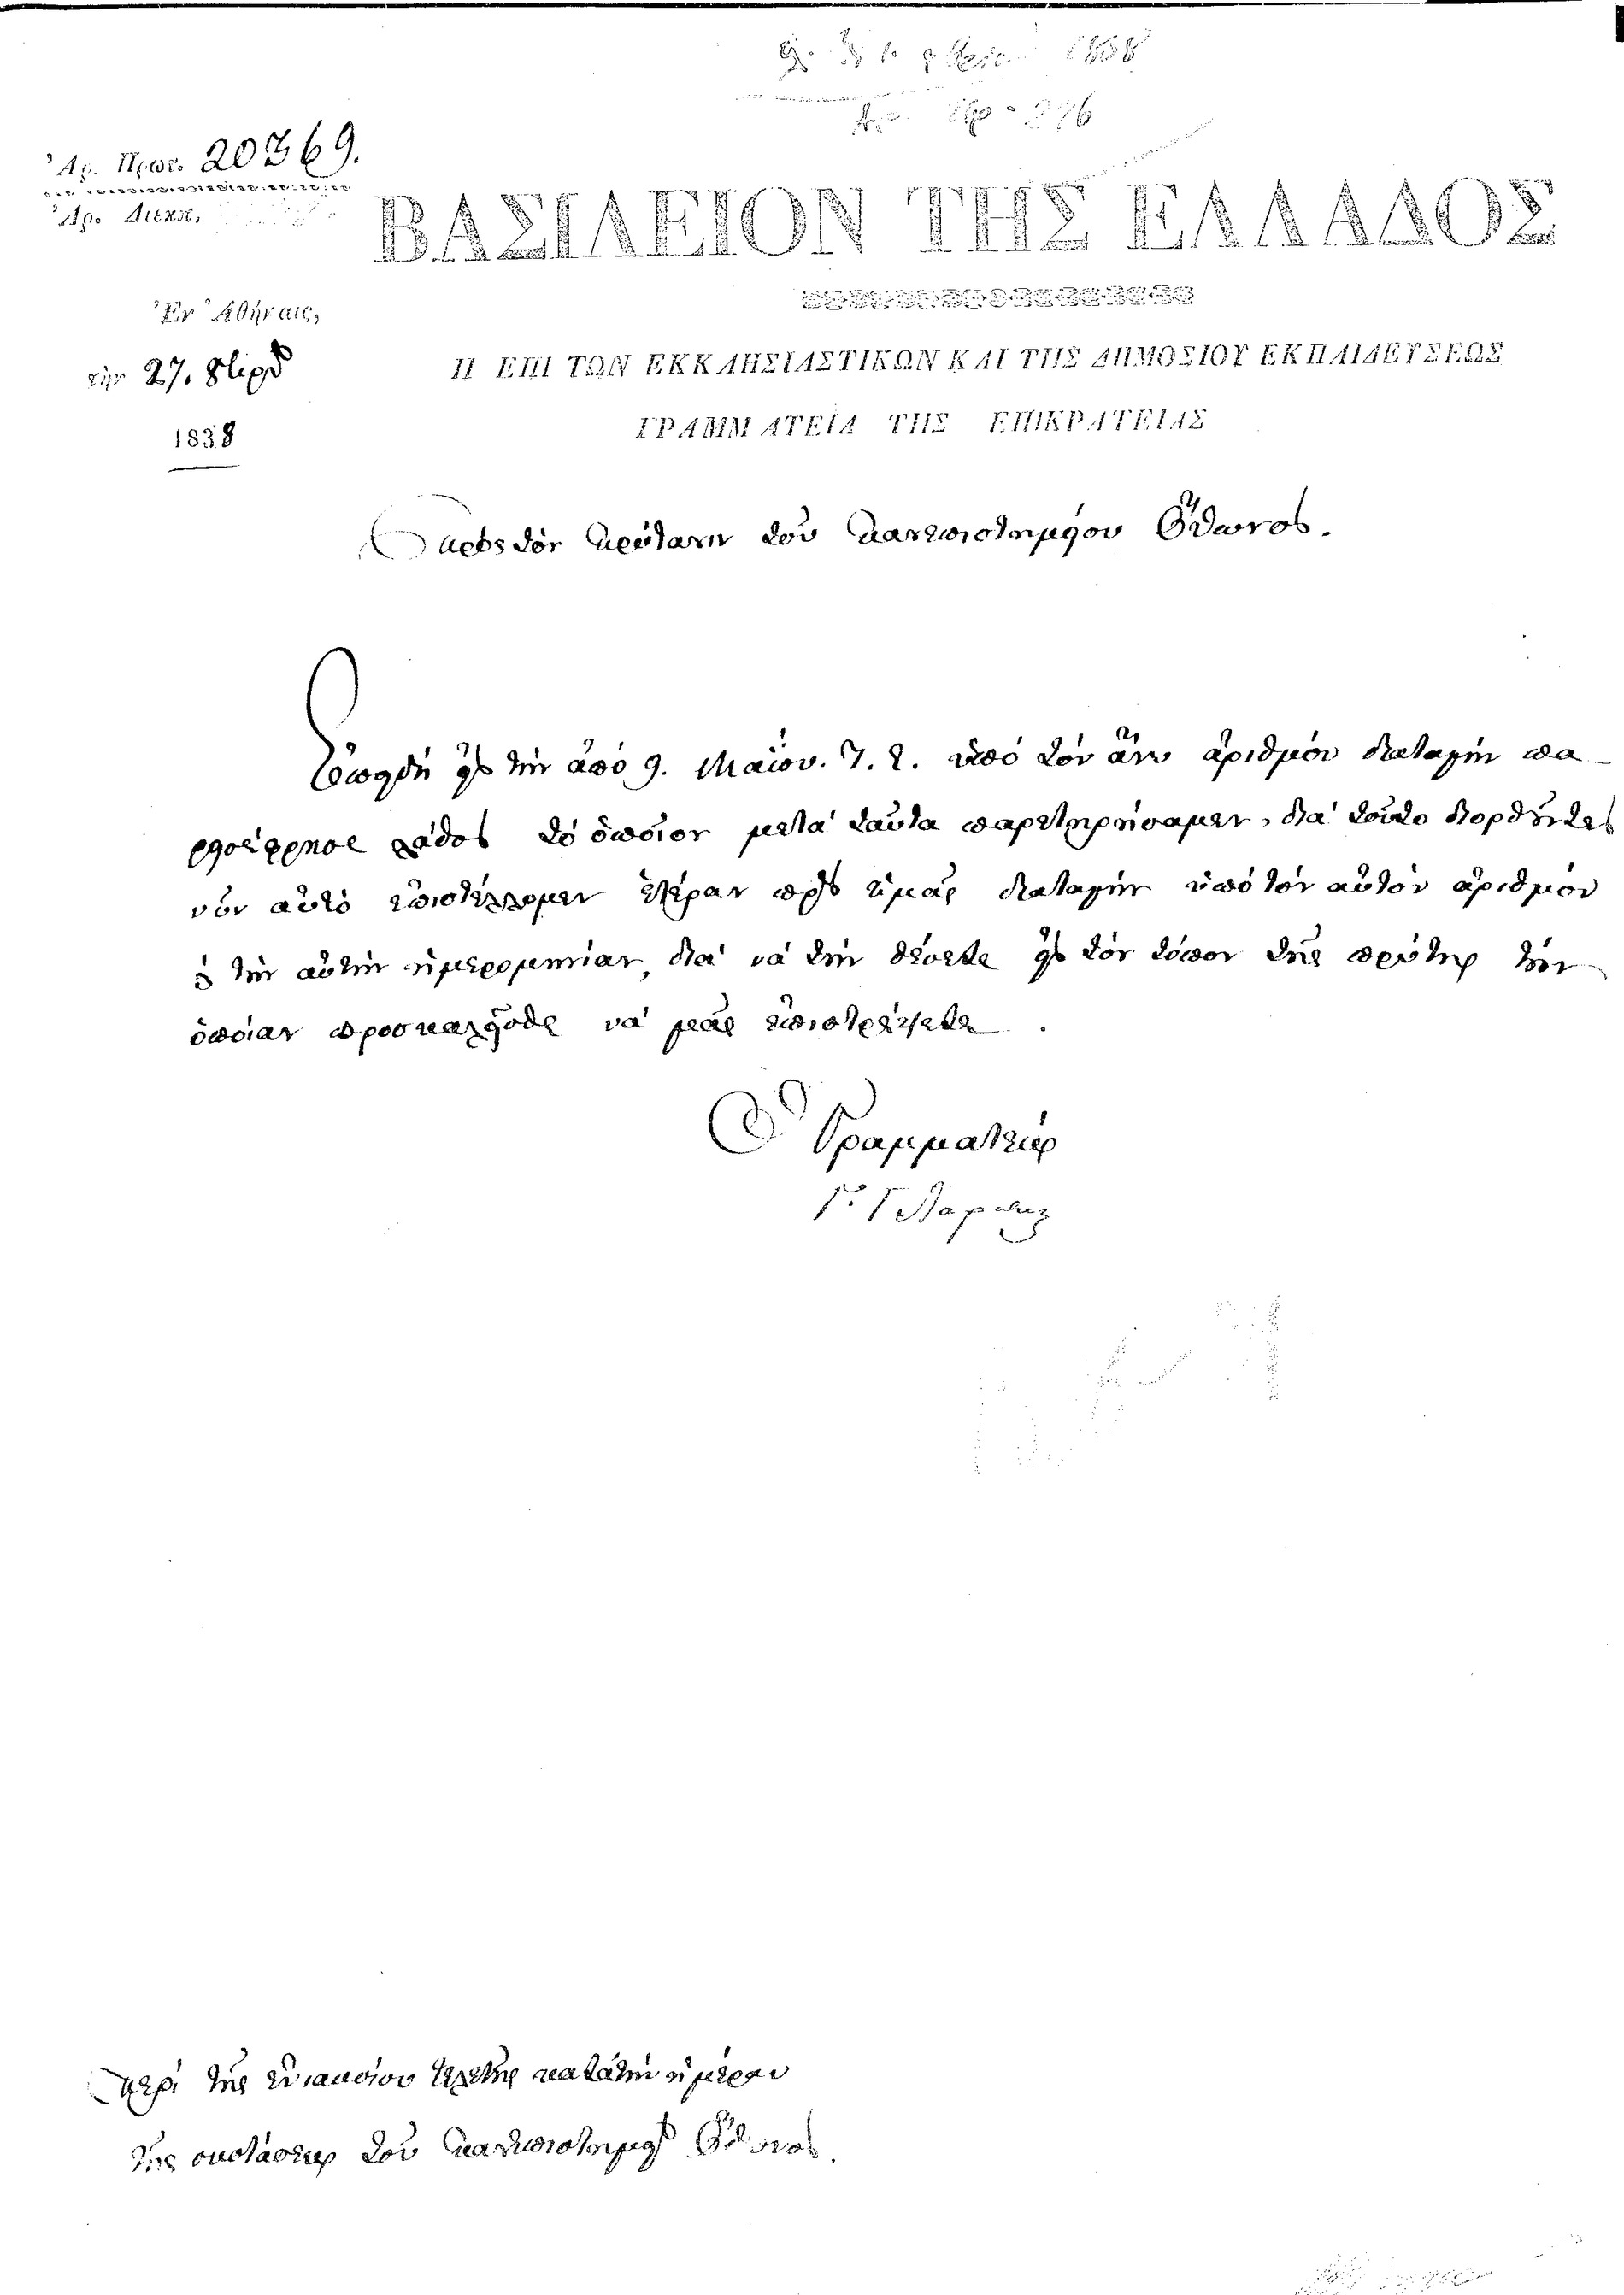 Ἀρ. Πρωτ. 20369.
Ἀρ. Διεκπ.
ΒΑΣΙΛΕΙΟΝ ΤΗΣ ΕΛΛΑΔΟΣ
Ἐν Ἀθήναις,
τὴν 27. 8βρίου
1838
Η ΕΠΙ ΤΩΝ ΕΚΚΛΗΣΙΑΣΤΙΚΩΝ ΚΑΙ ΤΗΣ ΔΗΜΟΣΙΟΥ ΕΚΠΑΙΔΕΥΣΕΩΣ
ΓΡΑΜΜΑΤΕΙΑ ΤΗΣ ΕΠΙΚΡΑΤΕΙΑΣ
Πρὸς τὸν πρύτανιν τοῦ Πανεπιστημίου Ὄθωνος.
Ἐπειδὴ εἰς τὴν ἀπὸ 9. Μαΐου. τ. ἔ. ὑπὸ τὸν ἄνω ἀριθμὸν διαταγὴν πα-
λάθος τὸ ὁποῖον μετὰ ταῦτα παρετηρήσαμεν, διὰ τοῦτο διορθοῦντες
νῦν αὐτὸ ἐπιστέλλομεν ἑτέραν πρὸς ὑμᾶς διαταγὴν ὑπὸ τὸν αὐτὸν ἀριθμὸν
καὶ τὴν αὐτὴν ἡμερομηνίαν, διὰ νὰ τὴν θέσετε εἰς τὸν τόπον τῆς πρώτης τὴν
ὁποίαν προσκαλεῖσθε νὰ μᾶς ἐπιστρέψετε.
Ὁ Γραμματεὺς
Περὶ τῆς ἐνιαυσίου τελετῆς κατὰ τὴν ἡμέραν
τῆς συστάσεως τοῦ Πανεπιστημίου Ὄθωνος.